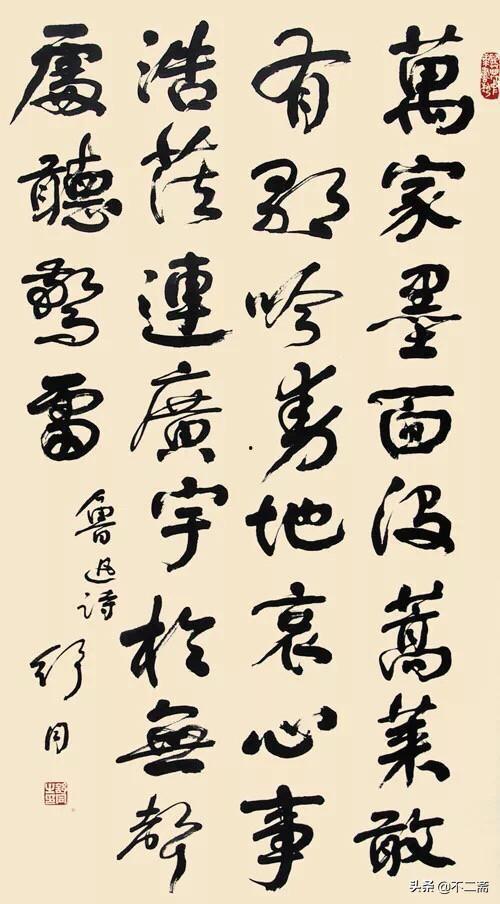 萬家墨面没蒿萊敢
有歌吟動地哀心事
浩茫連廣宇於無聲
處聽驚雷
魯迅詩
舒同
头条 @不二斋